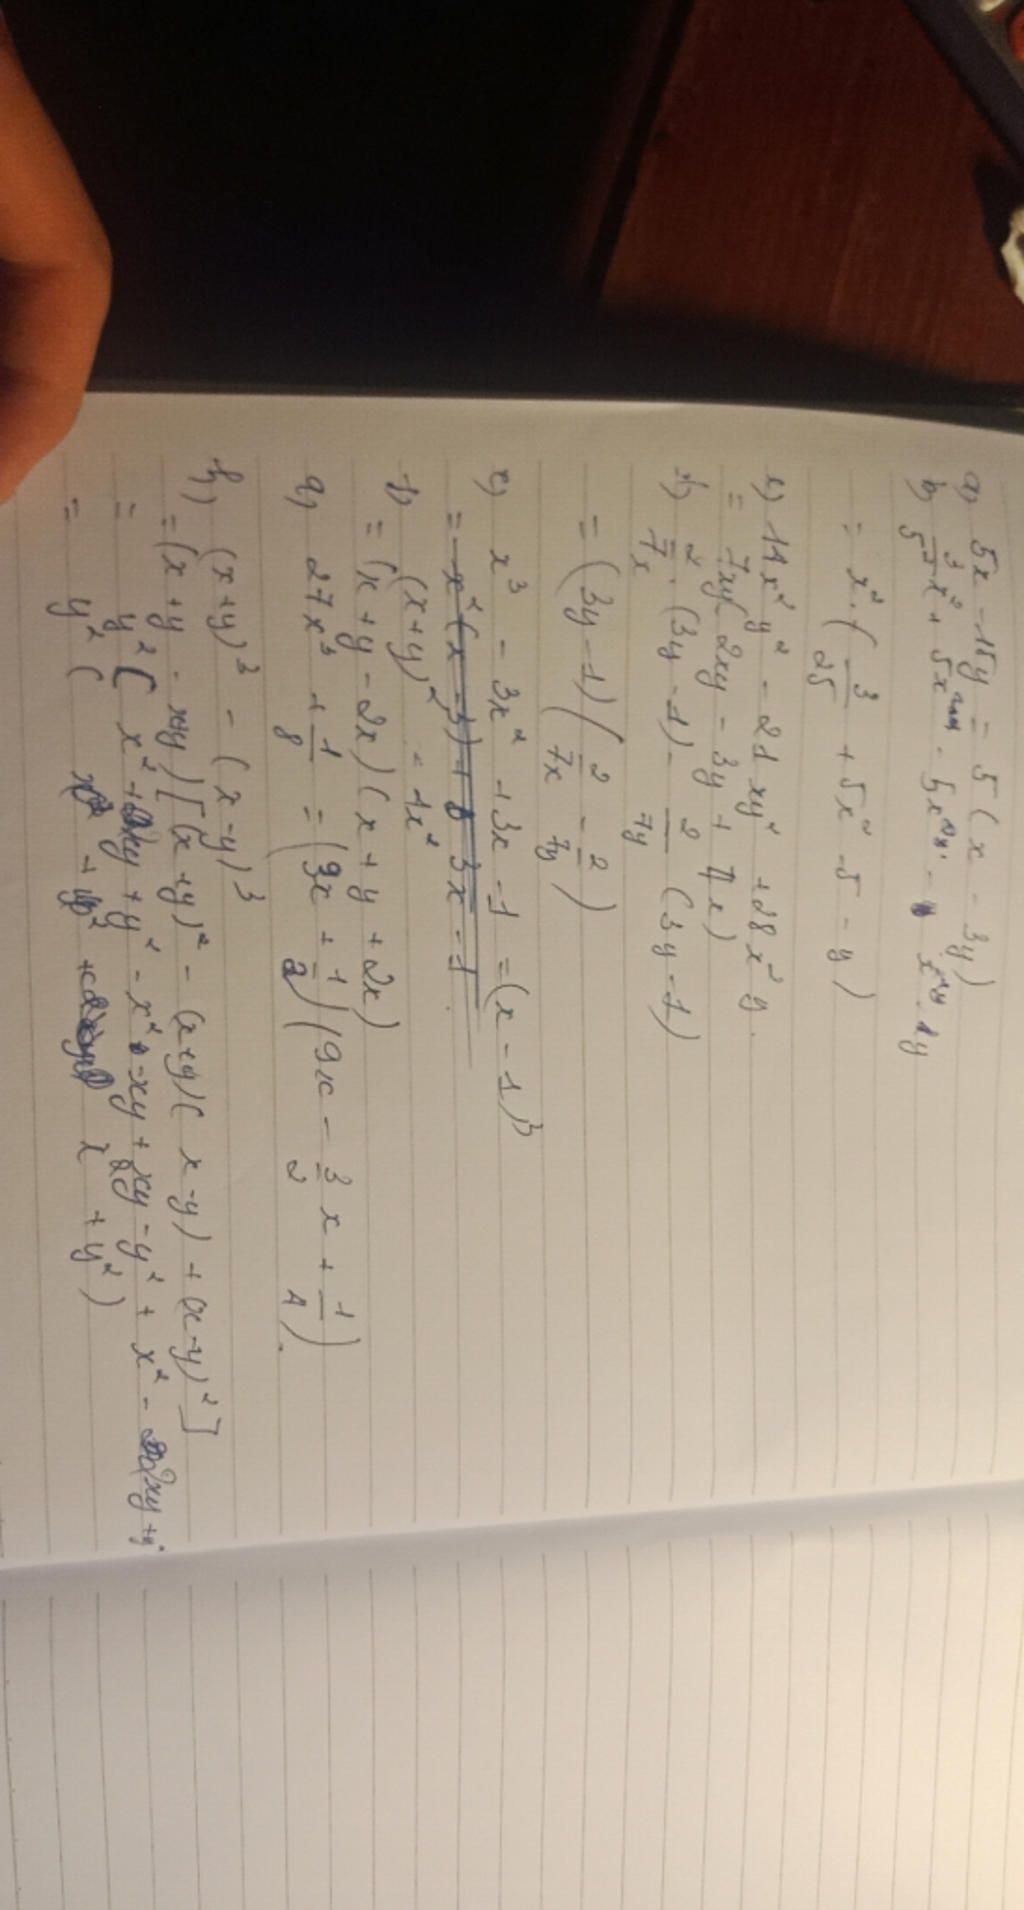 a) 5x - 15y = 5(x - 3y)
= x² . ( 3/25 + 5x² - 5 - y )
c) 14x²y² - 21xy² + 28x²y.
= 7xy( 2xy - 3y + 4x)
d) 2/7x . (3y - 1) - 2/7y (3y - 1)
= (3y - 1)( 2/7x - 2/7y )
e) x³ - 3x² + 3x - 1 = (x - 1)³
f) (x+y)² - 4x²
= (x + y - 2x)(x + y + 2x)
g) 27x³ + 1/8 = (9x + 1/2)(9x - 3/2 x + 1/4).
h) (x+y)³ - (x-y)³
= (x + y - x+y)[(x+y)² - (x+y)(x-y) + (x-y)²]
= y²( x² + xy + y² - x² - xy + xy - y² + x² - 2xy + y²
= y²( x + y²)